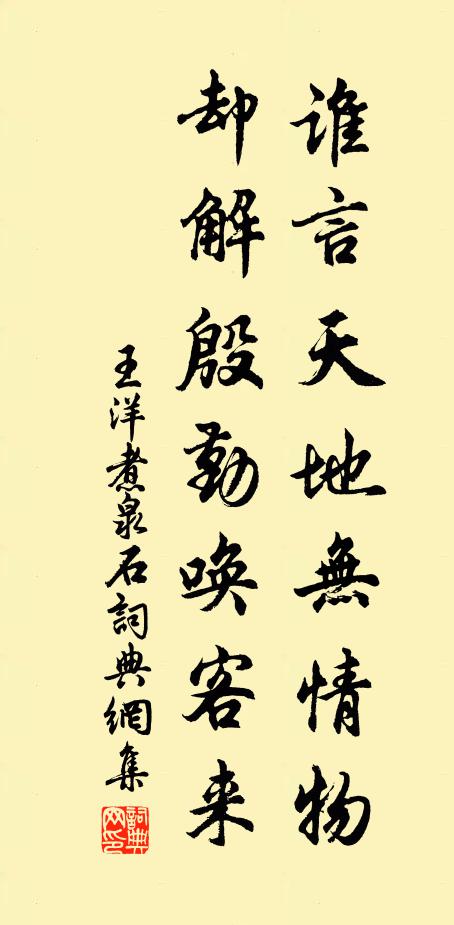 誰言天地無情物
却解殷勤喚客来
王洋煮泉石詞典網集
詞典網印